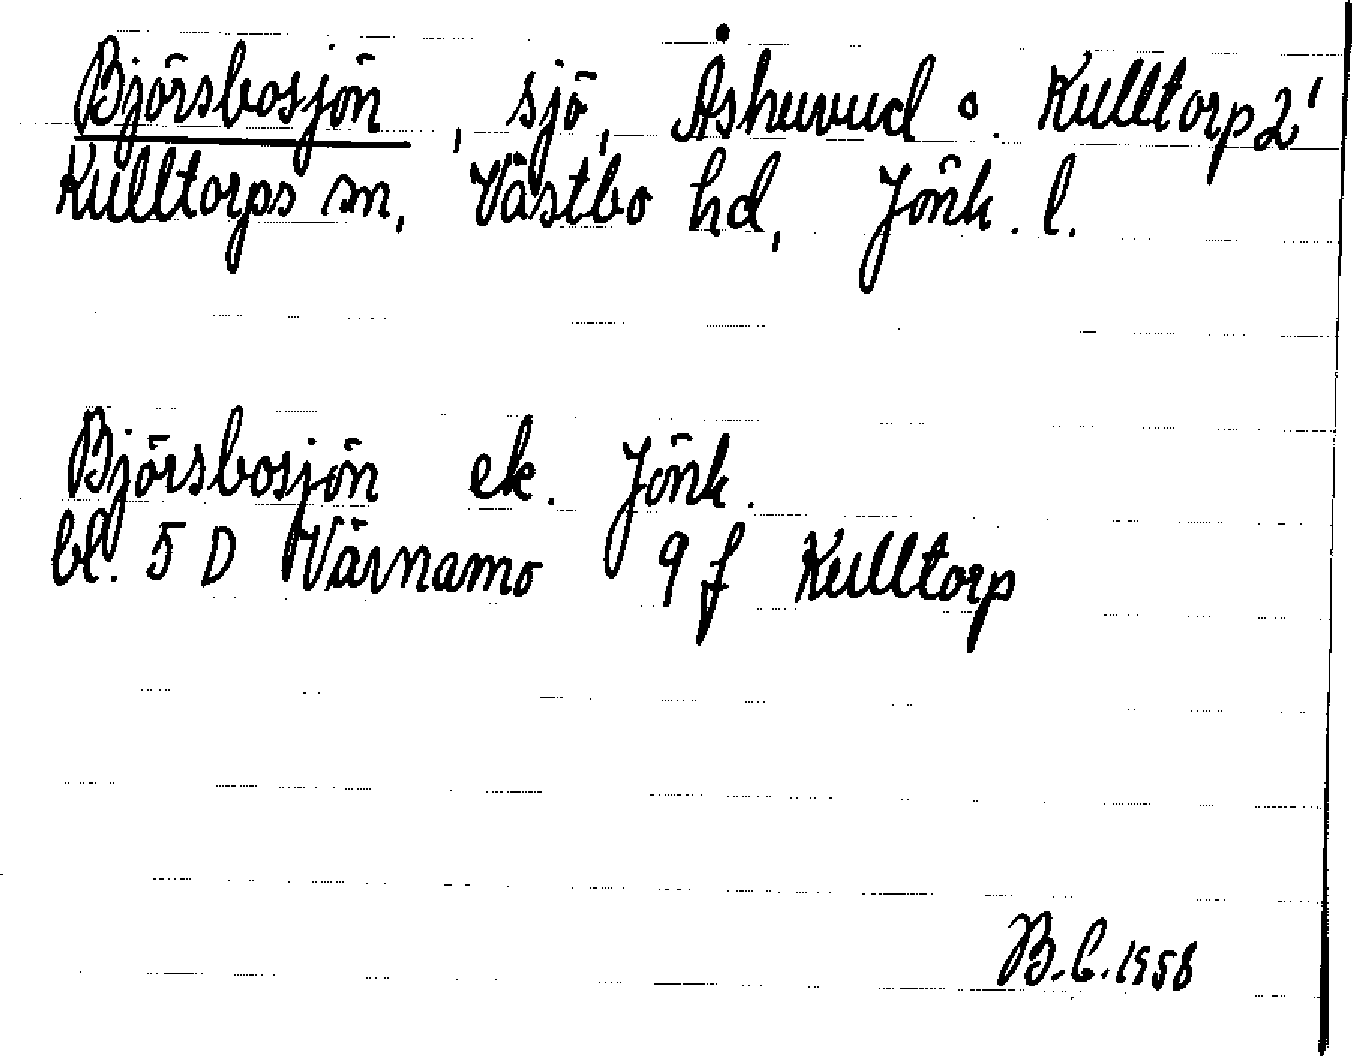 Björsbosjön, sjö, Åshuvud o. Kulltorp 2'
Kulltorps sn, Västbo hd, Jönk. l.
Björsbosjön ek. Jönk.
bl. 5 D Värnamo 9 f Kulltorp
B.C. 1958